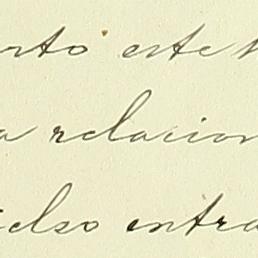 rto este
a relacion
elso entra